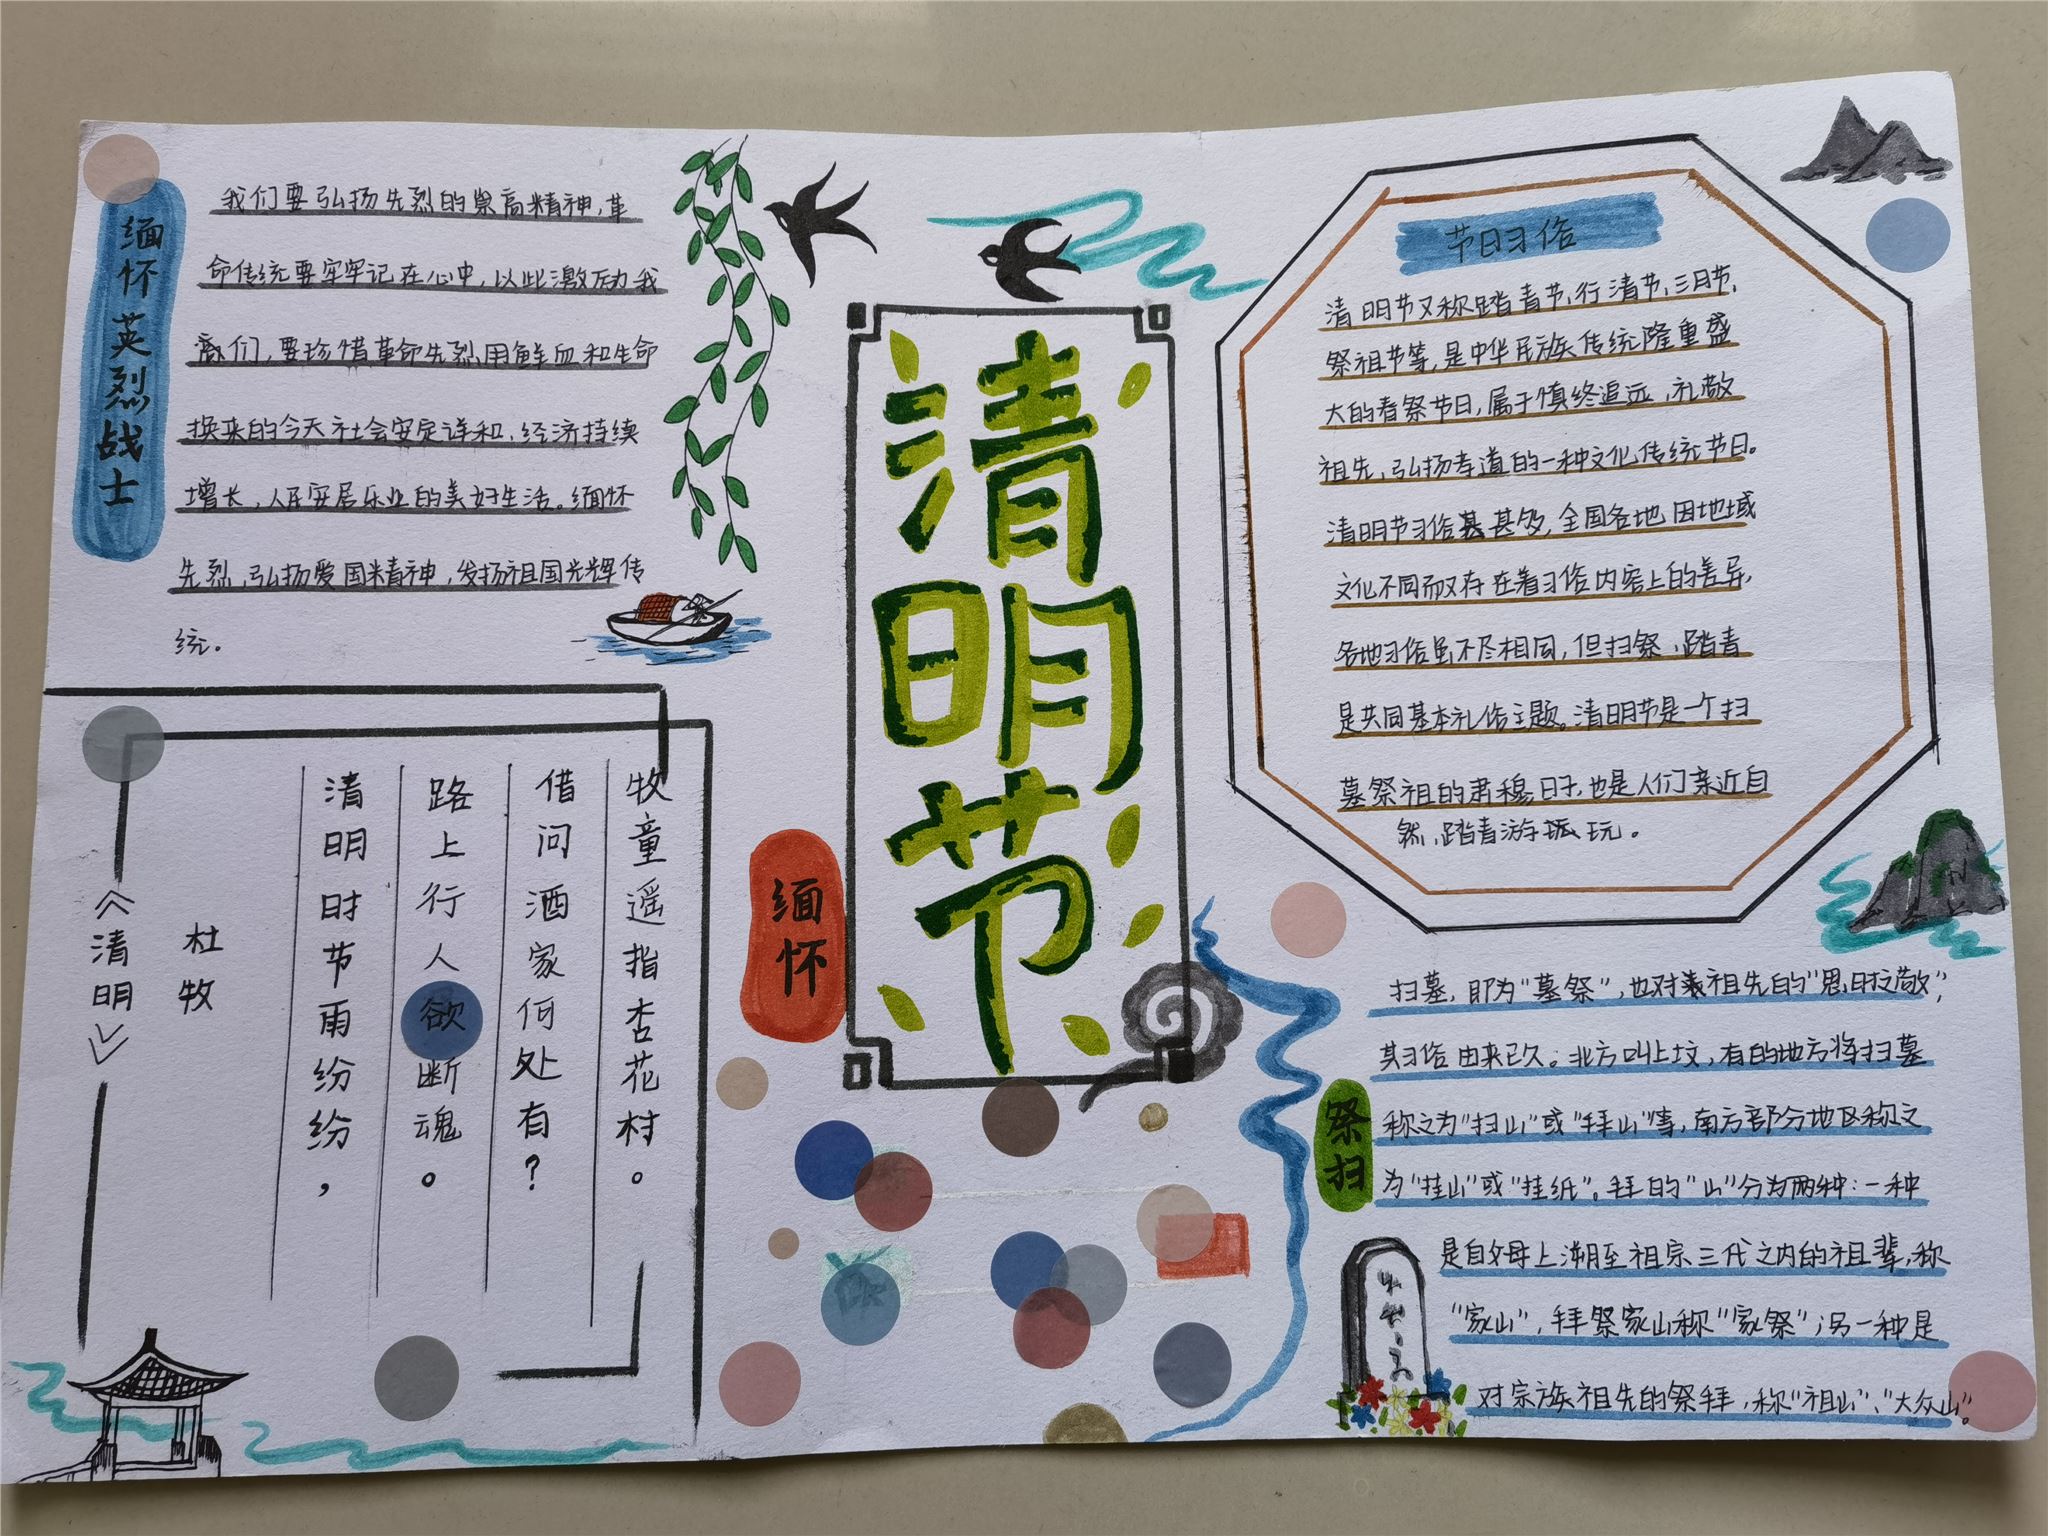 缅怀英烈战士
我们要弘扬先烈的崇高精神，革
命传统要牢牢记在心中，以此激励我
们，要珍惜革命先烈用鲜血和生命
换来的今天社会安定详和，经济持续
增长，人民安居乐业的美好生活。缅怀
先烈，弘扬爱国精神，发扬祖国光辉传
统。
清明节
缅怀
节日习俗
清明节又称踏青节，行清节，三月节，
祭祖节等，是中华民族传统隆重盛
大的春祭节日，属于慎终追远、礼敬
祖先，弘扬孝道的一种文化传统节日。
清明节习俗甚多，全国各地因地域
文化不同而又存在着习俗内容上的差异，
各地习俗虽不尽相同，但扫祭、踏青
是共同基本礼俗主题。清明节是一个扫
墓祭祖的肃穆日子，也是人们亲近自
然，踏青游玩。
《清明》
杜牧
清明时节雨纷纷，
路上行人欲断魂。
借问酒家何处有？
牧童遥指杏花村。
祭扫
扫墓，即为“墓祭”，也对祖先的“思时之敬”，
其习俗由来已久。北方叫上坟，有的地方将扫墓
称之为“扫山”或“拜山”等，南方部分地区称之
为“挂山”或“挂纸”。拜的“山”分为两种：一种
是自父母上溯至祖宗三代之内的祖辈，称
“家山”，拜祭家山称“家祭”；另一种是
对宗族祖先的祭拜，称“祖山”、“大众山”。